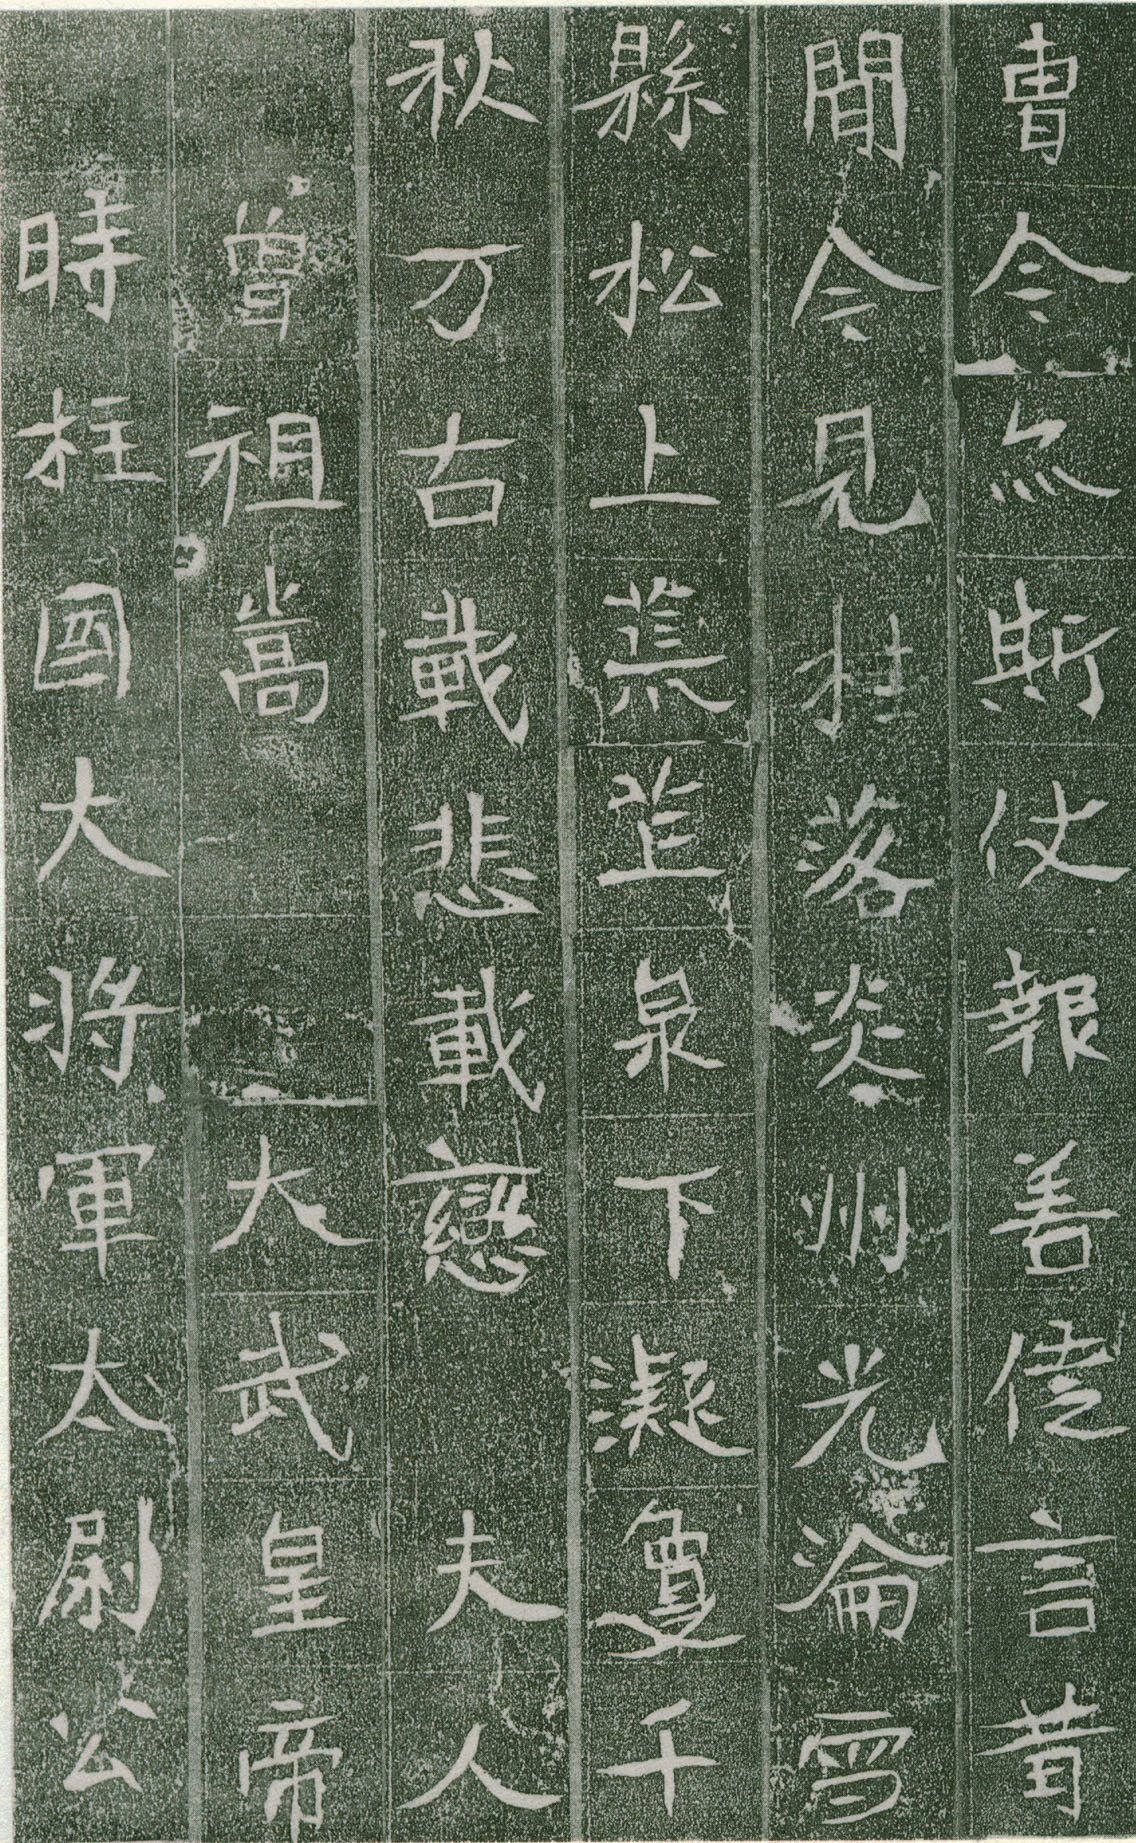 曹今尒斯仗報善徒言昔
聞今見桂落炎州光淪雪
縣松上荒芒泉下凝夐千
秋万古載悲載戀 夫人
曾祖嵩 大武皇帝
時柱國大將軍太尉公